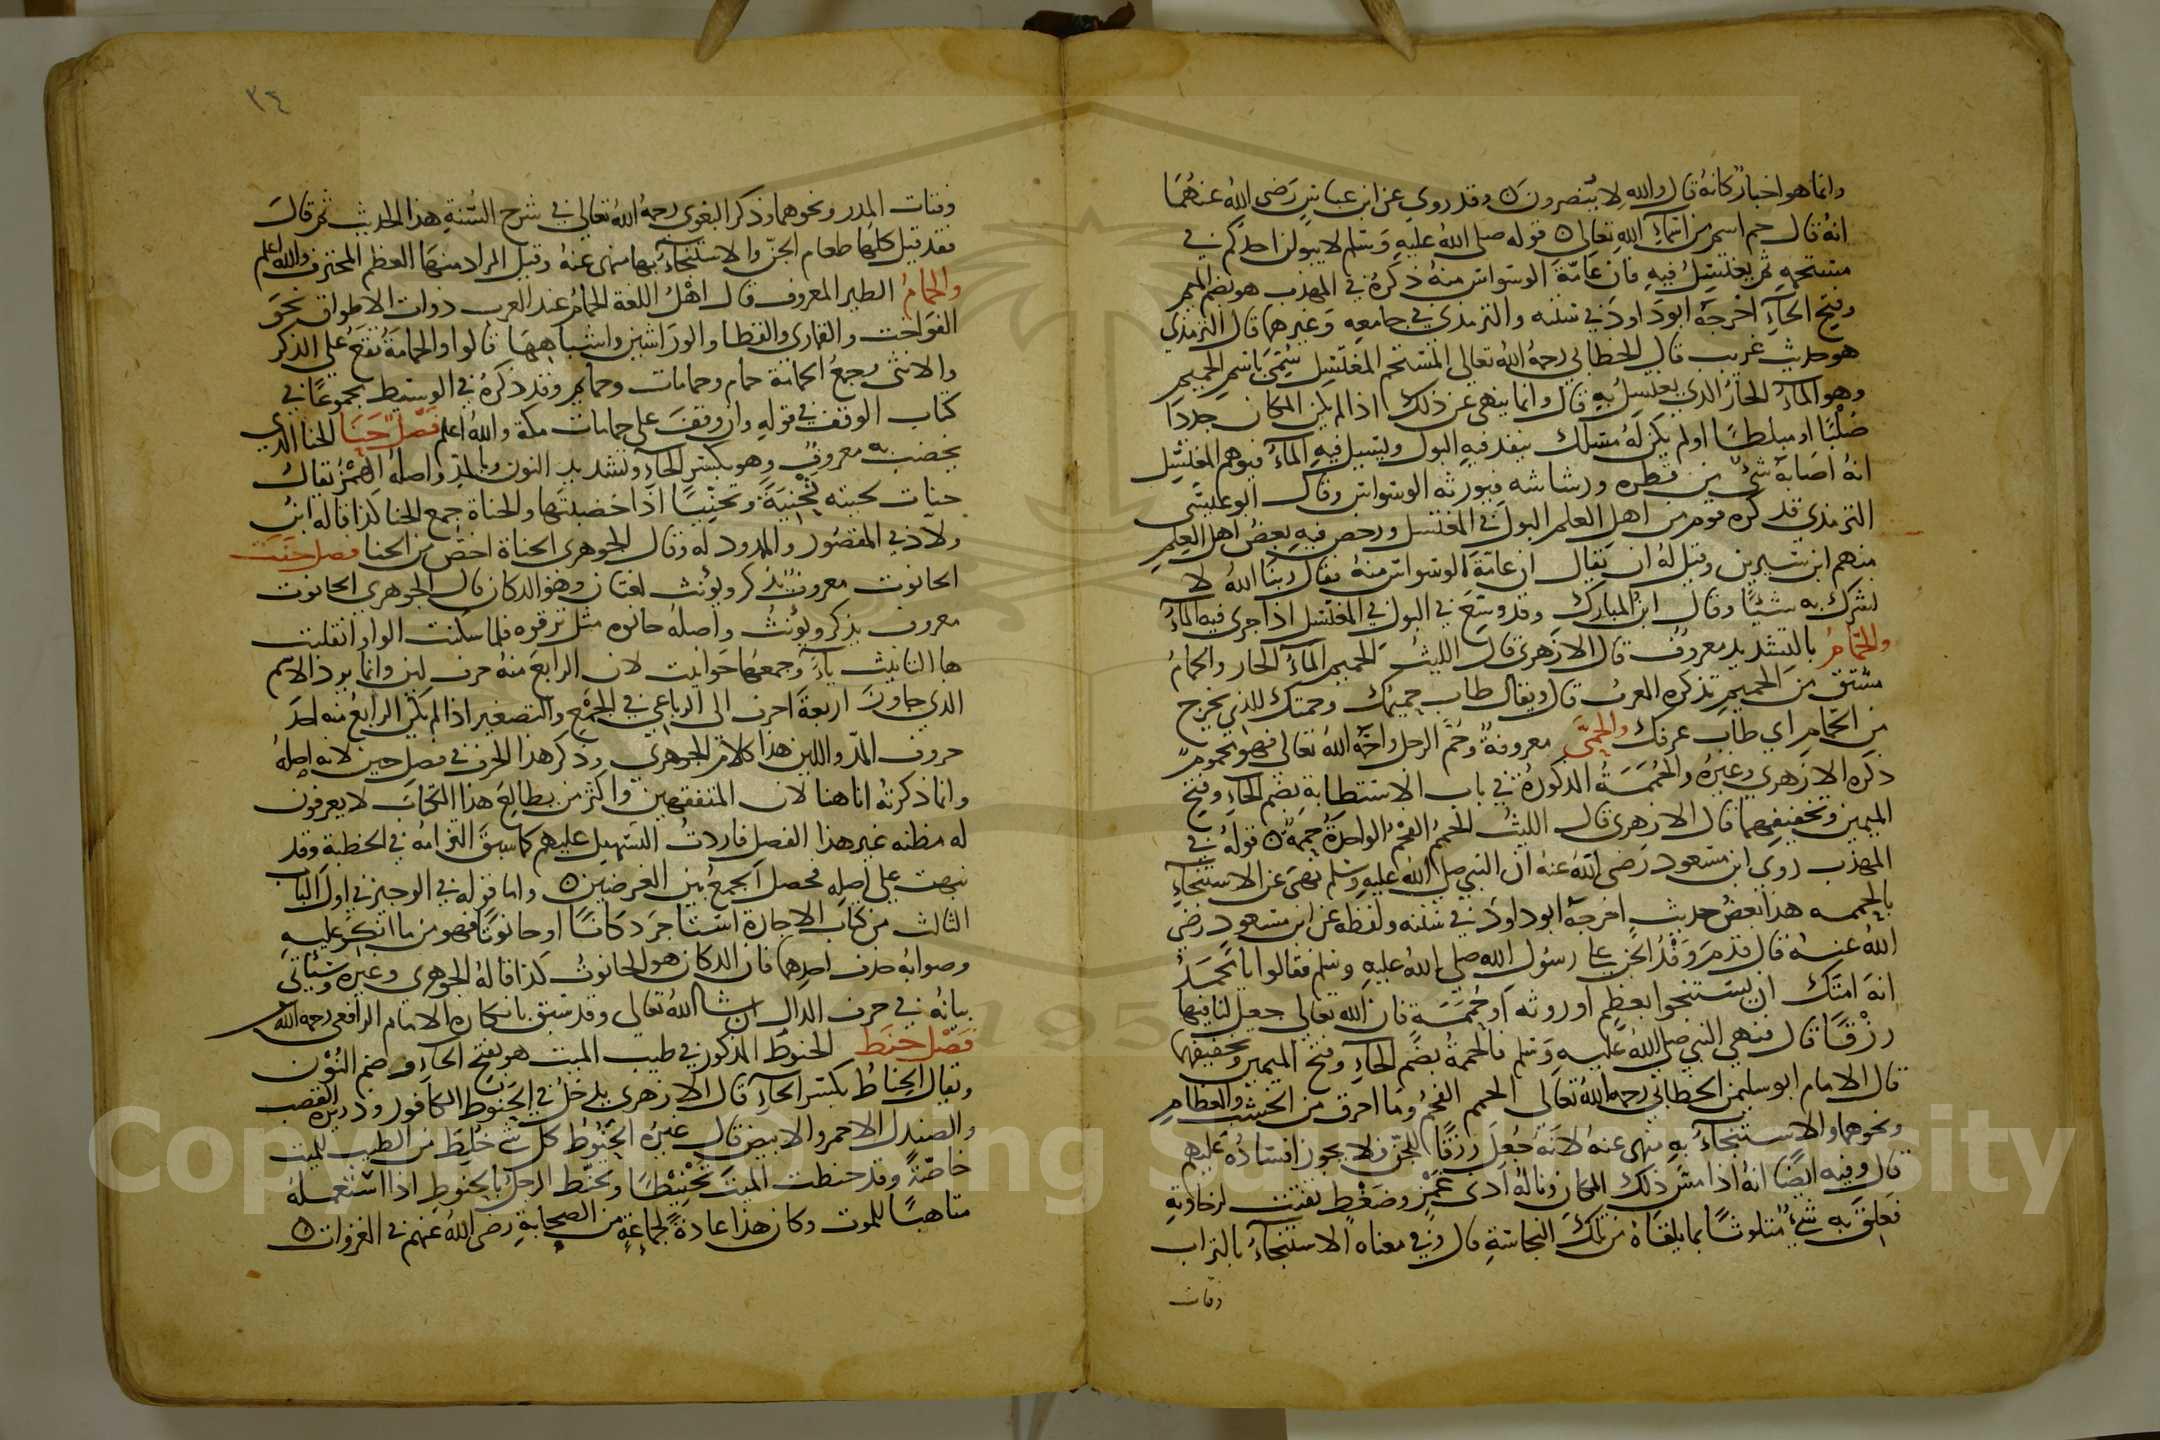 وانما هو اخبار كانه قال والله لا ينصرون وقد روي عن ابن عباس رضي الله عنهما
انه قال حم اسم من اسماء الله تعالى قوله صلى الله عليه وسلم لا يبولن احدكم في
مستحمه ثم يغتسل فيه فان عامة الوسواس منه ذكره في المهذب هو بضم الميم
وفتح الحاء اخرجه ابو داود في سننه والترمذي في جامعه وغيرهما قال الترمذي
هو حديث غريب قال الخطابي رحمه الله تعالى المستحم المغتسل سمي باسم الحميم
وهو الماء الحار الذي يغتسل به قال وانما ينهى عن ذلك اذا لم يكن المكان جددا
صلبا او مبلطا او لم يكن له مسلك ينفد فيه البول ويسيل فيه الماء فيوهم المغتسل
انه اصابه شئ من قطره ورشاشه فيورثه الوسواس وقال ابو عيسى
الترمذي قد كره قوم من اهل العلم البول في المغتسل ورخص فيه بعض اهل العلم
منهم ابن سيرين وقيل له ان يقال ان عامة الوسواس منه فقال ربنا الله لا
نشرك به شيئا وقال ابن المبارك وقد وسع في البول في المغتسل اذا جرى فيه الماء
والحمام بالتشديد معروف قال الازهري قال الليث الحميم الماء الحار والحمام
مشتق من الحميم تذكره العرب قال ويقال طاب حميمك وحمتك للذي يخرج
من الحمام اي طاب عرقك والحمى معروفة وحم الرجل واحمه الله تعالى فهو محموم
ذكره الازهري وغيره والحممة المذكورة في باب الاستطابة بضم الحاء وفتح
الميمين وتخفيفهما قال الازهري قال الليث الحمم الفحم الواحدة حممة قوله في
المهذب روى ابن مسعود رضي الله عنه ان النبي صلى الله عليه وسلم نهى عن الاستنجاء
بالحممه هذا بعض حديث اخرجه ابو داود في سننه ولفظه عن ابن مسعود رضي
الله عنه قال قدم وفد الجن على رسول الله صلى الله عليه وسلم فقالوا يا محمد
انه امتك ان يستنجوا بعظم او روثه او حممة فان الله تعالى جعل لنا فيها
رزقا قال فنهى النبي صلى الله عليه وسلم فالحممة بضم الحاء وفتح الميمين وتخفيفهما
قال الامام ابو سليمن الخطابي رحمه الله تعالى الحمم الفحم وما احرق من الخشب والعظام
ونحوهما والاستنجاء به منهى عنه لانه جعل رزقا للجن فلا يجوز افساده عليهم
قال وفيه ايضا انه اذا مس ذلك المكان وناله ادى غمز وضغط تفتت لرخاوته
فعلق به شئ متلوثا بما يلقاه من تلك النجاسة قال وفي معناه الاستنجاء بالتراب
وفتات
٣٤
وفتات المدر ونحوهما وذكر البغوي رحمه الله تعالى في شرح السنة هذا الحديث ثم قال
فقد قيل كلها طعام الجن والاستنجاء بها منهى عنه وقيل المراد منها العظم المحترق والله اعلم
والحمام الطير المعروف قال اهل اللغة الحمام عند العرب ذوات الاطواق نحو
الفواخت والقمارى والقطا والوراشين واشباهها قالوا والحمامة تقع على الذكر
والانثى وجمع الحمامة حمام وحمامات وحمايم وقد ذكره في الوسيط مجموعا في
كتاب الوقف في قوله وان وقف على حمامات مكة والله اعلم فصل حنا الحنا الذي
يخضب به معروف وهو بكسر الحاء وتشديد النون وبالمد واصله الهمز يقال
حنات لحيته تحنية وتحنيا اذا خضبتها والحناة جمع الحنا كذا قاله ابن
ولاد في المقصور والممدود له وقال الجوهري الحناة اخص من الحنا فصل حنت
الحانوت معروف يذكر ويؤنث لغتان وهو الدكان قال الجوهري الحانوت
معروف يذكر ويؤنث واصله حانوه مثل ترقوه فلما سكنت الواو انقلبت
ها التانيث ياء وجمعها حوانيت لان الرابع منه حرف لين وانما يرد الاسم
الذي جاوز اربعة احرف الى الرباعي في الجمع والتصغير اذا لم يكن الرابع منه احد
حروف المد واللين هذا كلام الجوهري وذكر هذا الحرف في فصل حين لانه اصله
وانما ذكرته انا هنا لان المتفقهين واكثر من يطالع هذا الكتاب لا يعرفون
له مظنه غير هذا الفصل فاردت التسهيل عليهم كما سبق التزامه في الخطبة وقد
نبهت على اصله فحصل الجمع بين الغرضين واما قوله في الوجيز في اول الباب
الثالث من كتاب الاجارة استاجر دكانا او حانوتا فهو من ما انكر عليه
وصوابه حذف احدهما فان الدكان هو الحانوت كذا قاله الجوهري وغيره وسياتي
بيانه في حرف الدال ان شا الله تعالى وقد سبق بانكاره الامام الرافعي رحمه الله
فصل حنط الحنوط المذكور في طيب الميت هو بفتح الحاء وضم النون
ويقال الحناط بكسر الحاء قال الازهري يدخل في الحنوط الكافور وذريرة القصب
والصندل الاحمر والابيض قال غيره الحنوط كل شئ خلط من الطيب للميت
خاصة وقد حنطت الميت تحنيطا وتحنط الرجل بالحنوط اذا استعمله
متاهبا للموت وكان هذا عادة لجماعة من الصحابة رضي الله عنهم في الغزوات
Copyright © King Saud University
195